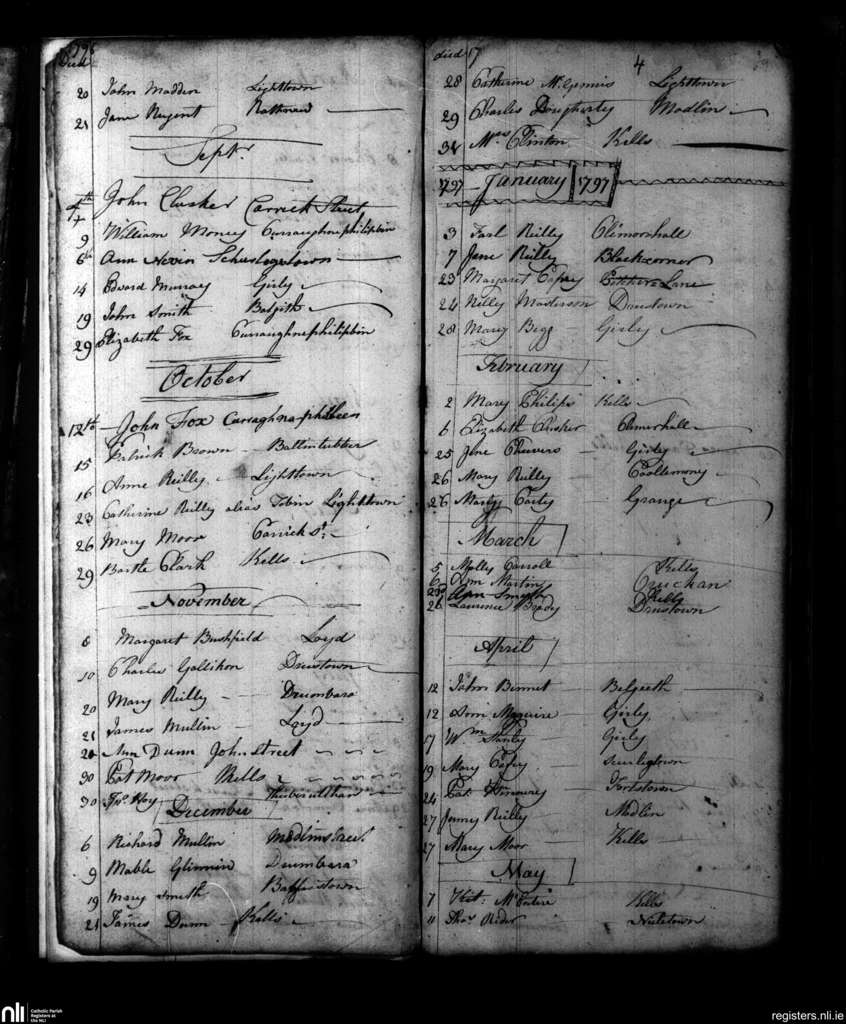 1796
Died
20 John Madden Lighttown
21 Jane Nugent Rathmane
Septr
4th John Clusker Carrick Street
9 William Money Curraughnephilipbin
6th Ann Nevin Scharlogstown
14 Edward Murray Girly
19 John Smith Balgith
29 Elizabeth Fox Curraughnephilipbin
October
12th John Fox Curraghnaphilbeen
15 Patrick Brown Ballintubber
16 Anne Reilly Lighttown
23 Catherine Reilly alias Tobin Lighttown
26 Mary Moor Carrick St
29 Bartle Clark Kells
November
8 Margaret Bushfield Loyd
10 Charles Gallikon Drewstown
20 Mary Reilly Drumbara
21 James Mullin Loyd
20 Ann Dunn John Street
30 Pat Moor Kells
30 Jno Hoy
December
6 Richard Mullin Modlin Street
9 Mable Glinnin Drumbara
19 Mary Smith
21 James Dunn Kells
died 17
4
28 Catherine McGinnis Lighttown
29 Charles Dougherty Modlin
31 Mrs Clinton Kells
1797 January 1797
3 Farl Reilly Climorshall
7 Jane Reilly Blackcorner
23 Margaret Caffry Lane
24 Nelly Maderson Drewstown
28 Mary Begg Girly
February
2 Mary Philips Kells
6 Elizabeth Clusker Clamorhall
25 Jane Cheevers Girly
26 Mary Reilly Coollemony
26 Marty Carty Grange
March
5 Molly Carroll Kells
6 Ann Martin Cruchan
23d Ann Smyth Kells
26 Laurence Brady Drewstown
April
12 John Bennet Belgeeth
12 Maguire Girly
17 Wm Stanly Girly
19 Mary Caffry Scurlogtown
24 Pat Fortstown
27 Jenny Reilly Modlin
27 Mary Moor Kells
May
7 Kit: McEntire Kells
11 Thos Rider Nulstown
nli
Catholic Parish
Registers at
the NLI
registers.nli.ie